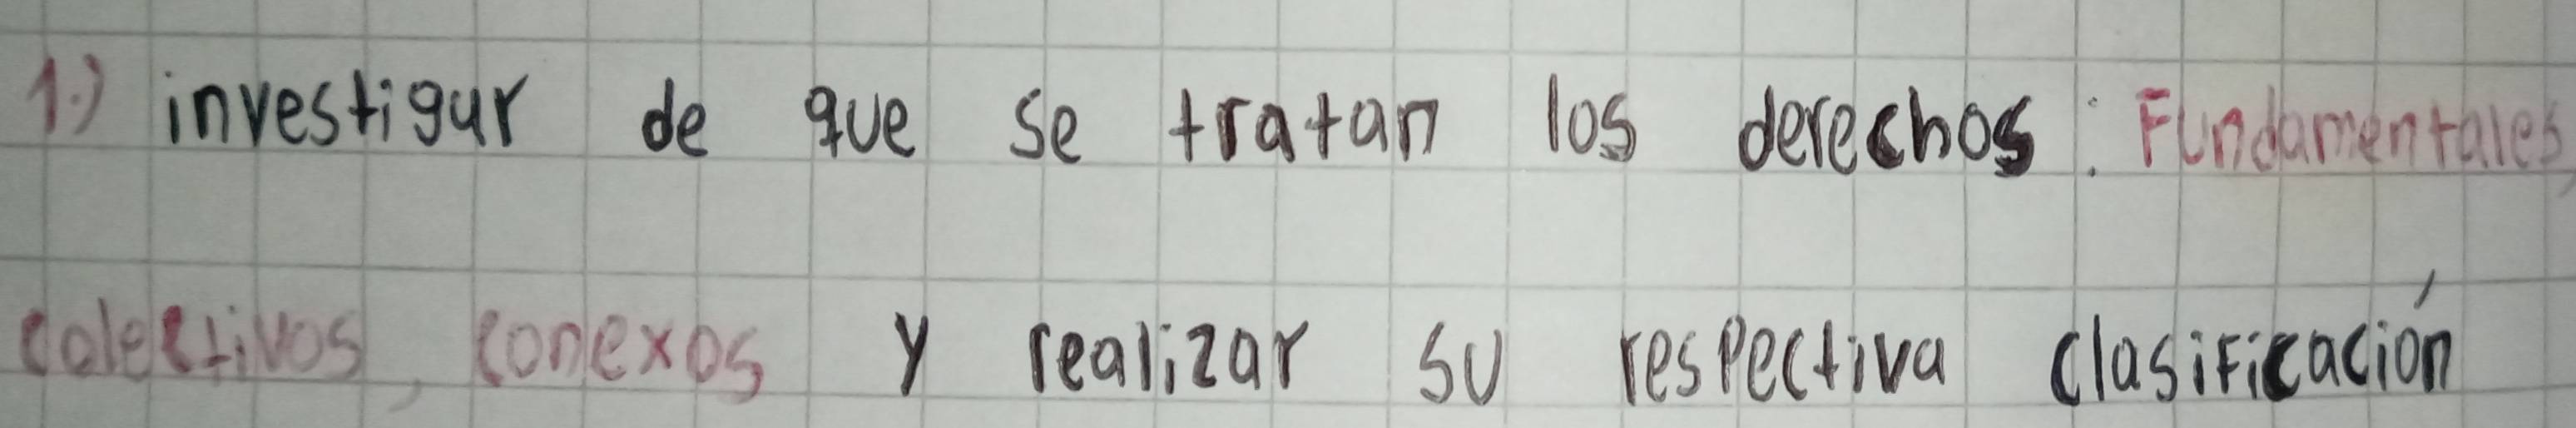 1.) investigar de que se tratan los derechos: Fundamentales,
colectivos, conexos y realizar su respectiva clasificación